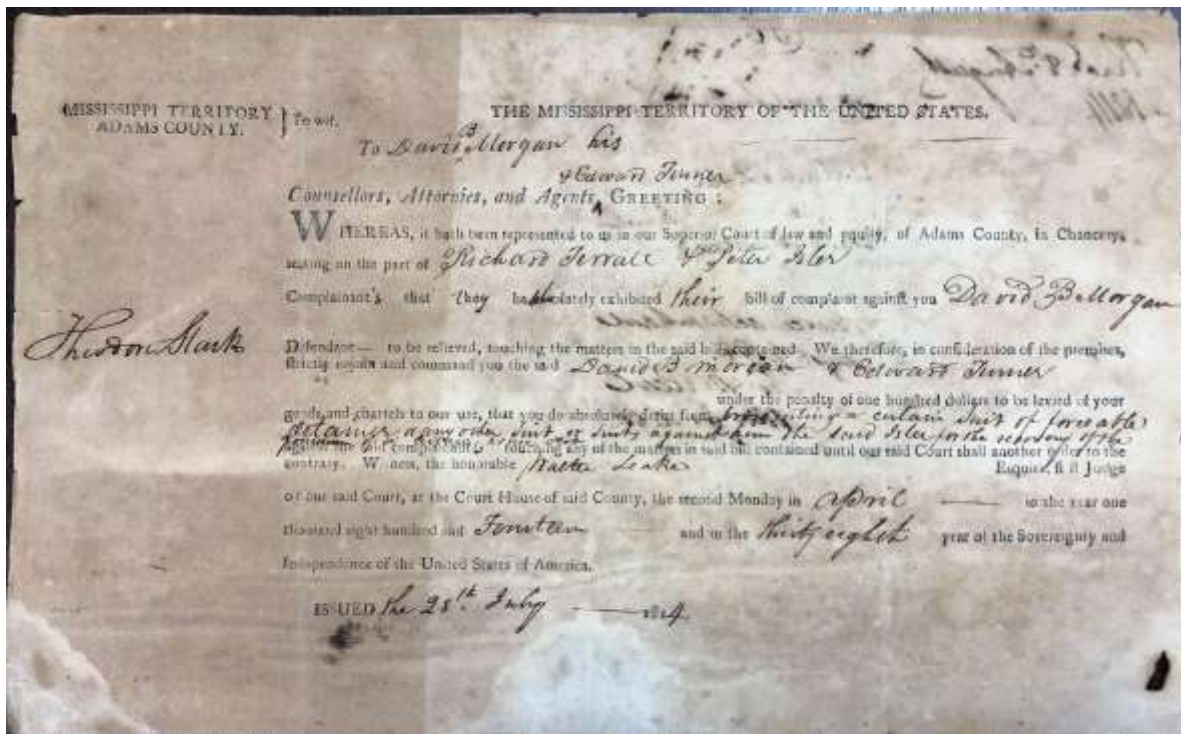 MISSISSIPPI TERRITORY
ADAMS COUNTY.
} To wit.
THE MISSISSIPPI TERRITORY OF THE UNITED STATES.
To David B Morgan his
& Edward Turner
Counsellors, Attornies, and Agents, ^ GREETING:
WHEREAS, it hath been represented to us in our Superior Court of law and equity, of Adams County, in Chancery,
seating on the part of Richard Terrall & Peter Isler
Complainant's that they have lately exhibited their bill of complaint against you David B Morgan
Theodore Stark
Defendant — to be relieved, touching the matters in the said bill contained. We therefore, in consideration of the premises,
strictly enjoin and command you the said David B Morgan & Edward Turner
under the penalty of one hundred dollars to be levied of your
goods and chattels to our use, that you do absolutely desist from prosecuting a certain suit of forceable
detainer or any other suit or suits against him the said Isler for the recovery of the
against the said complainants touching any of the matters in said bill contained until our said Court shall another order to the
contrary. Witness, the honorable Walter Leake Esquire, first Judge
of our said Court, at the Court House of said County, the second Monday in April — in the year one
thousand eight hundred and Fourteen and in the thirty eighth year of the Sovereignty and
Independence of the United States of America.
ISSUED the 28th July — 1814.